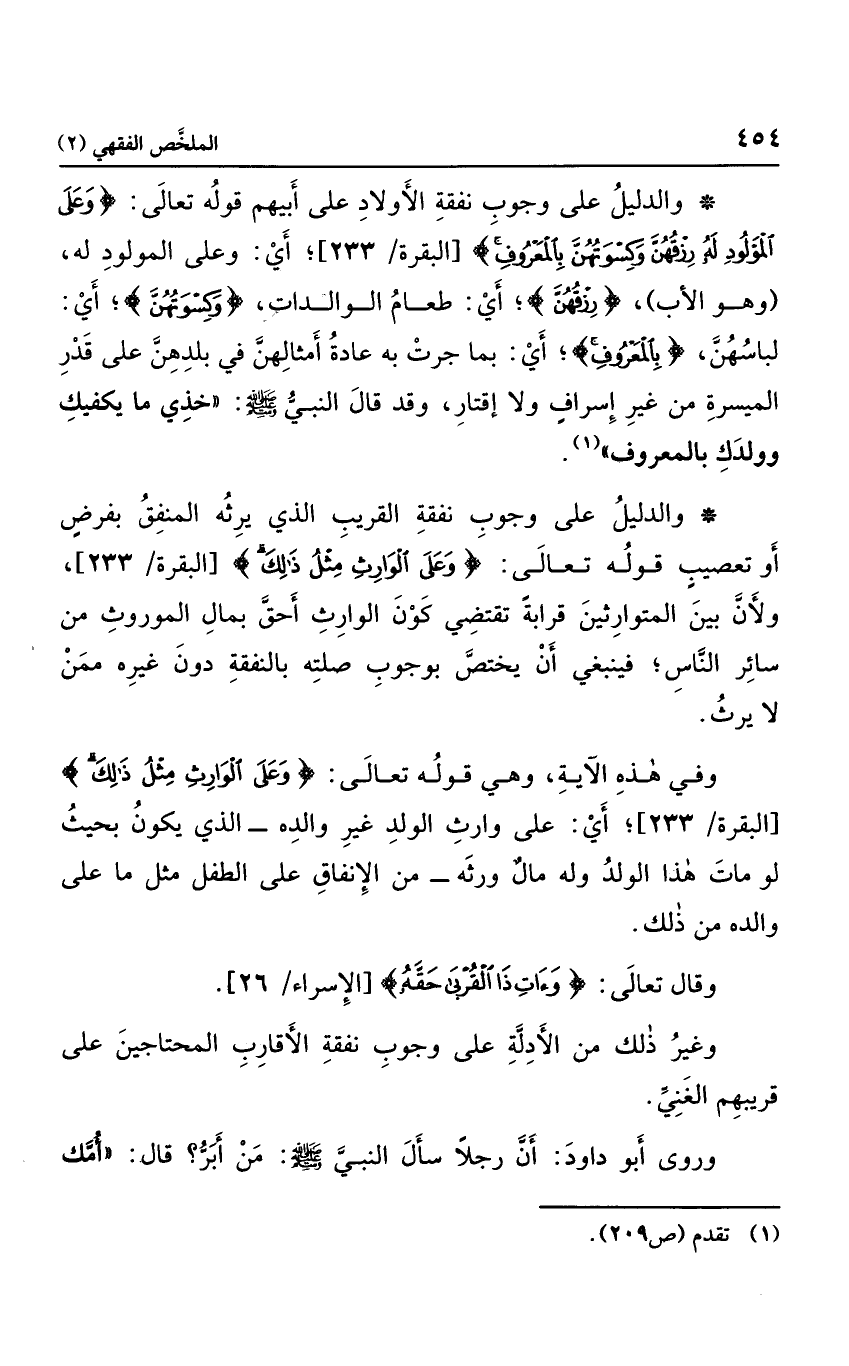 ٤٥٤ الملخَّص الفقهي (٢)
* والدليلُ على وجوبِ نفقةِ الأَولادِ على أَبيهم قولُه تعالَى: ﴿وَعَلَى
ٱلْمَوْلُودِ لَهُۥ رِزْقُهُنَّ وَكِسْوَتُهُنَّ بِٱلْمَعْرُوفِۚ﴾ [البقرة/ ٢٣٣]؛ أَيْ: وعلى المولودِ له،
(وهو الأب)، ﴿رِزْقُهُنَّ﴾؛ أَيْ: طعامُ الوالدات، ﴿وَكِسْوَتُهُنَّ﴾؛ أَيْ:
لباسُهُنَّ، ﴿بِٱلْمَعْرُوفِۚ﴾؛ أَيْ: بما جرتْ به عادةُ أَمثالِهنَّ في بلدِهنَّ على قَدْرِ
الميسرةِ من غيرِ إِسرافٍ ولا إقتارٍ، وقد قالَ النبيُّ ﷺ: «خذِي ما يكفيكِ
وولدَكِ بالمعروف»(١).
* والدليلُ على وجوبِ نفقةِ القريبِ الذي يرثُه المنفِقُ بفرضٍ
أَو تعصيبٍ قولُه تعالَى: ﴿وَعَلَى ٱلْوَارِثِ مِثْلُ ذَٰلِكَۗ﴾ [البقرة/ ٢٣٣]،
ولأَنَّ بينَ المتوارِثينَ قرابةً تقتضِي كَوْنَ الوارثِ أَحقَّ بمالِ الموروثِ من
سائِر النَّاسِ؛ فينبغي أَنْ يختصَّ بوجوبِ صلتِه بالنفقةِ دونَ غيرِه ممَنْ
لا يرثُ.
وفي هٰذهِ الآيةِ، وهي قولُه تعالَى: ﴿وَعَلَى ٱلْوَارِثِ مِثْلُ ذَٰلِكَۗ﴾
[البقرة/ ٢٣٣]؛ أَيْ: على وارثِ الولدِ غيرِ والدِه ــ الذي يكونُ بحيثُ
لو ماتَ هٰذا الولدُ وله مالٌ ورثَه ــ من الإِنفاقِ على الطفل مثل ما على
والده من ذٰلك.
وقال تعالَى: ﴿وَءَاتِ ذَا ٱلْقُرْبَىٰ حَقَّهُۥ﴾ [الإِسراء/ ٢٦].
وغيرُ ذٰلك من الأَدِلَّةِ على وجوبِ نفقةِ الأَقاربِ المحتاجينَ على
قريبِهم الغَنِيِّ.
وروى أَبو داودَ: أَنَّ رجلاً سأَلَ النبيَّ ﷺ: مَنْ أَبَرُّ؟ قال: «أُمَّك
(١) تقدم (ص٢٠٩).